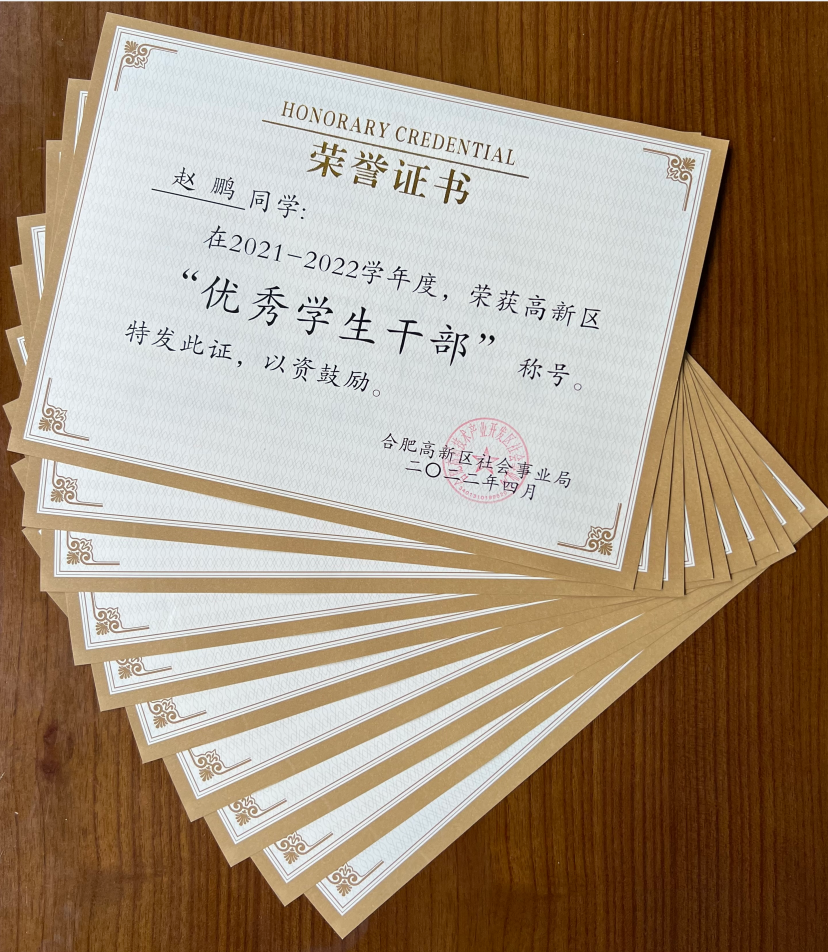 HONORARY CREDENTIAL
荣誉证书
赵 鹏 同学:
在2021-2022学年度，荣获高新区
“优秀学生干部”称号。
特发此证，以资鼓励。
合肥高新区社会事业局
二〇二二年四月
技术产业开发区社会